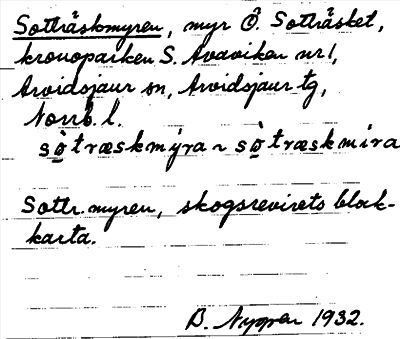 Sotträskmyren, myr Ö. Sotträsket,
kronoparken S. Avaviken nr 1,
Arvidsjaur sn, Arvidsjaur tg,
Norrb. l.
sòtræskmýra ~ sòtræskmira
Sottr. myren, skogsrevirets blad-
karta.
B. Nygren 1932.